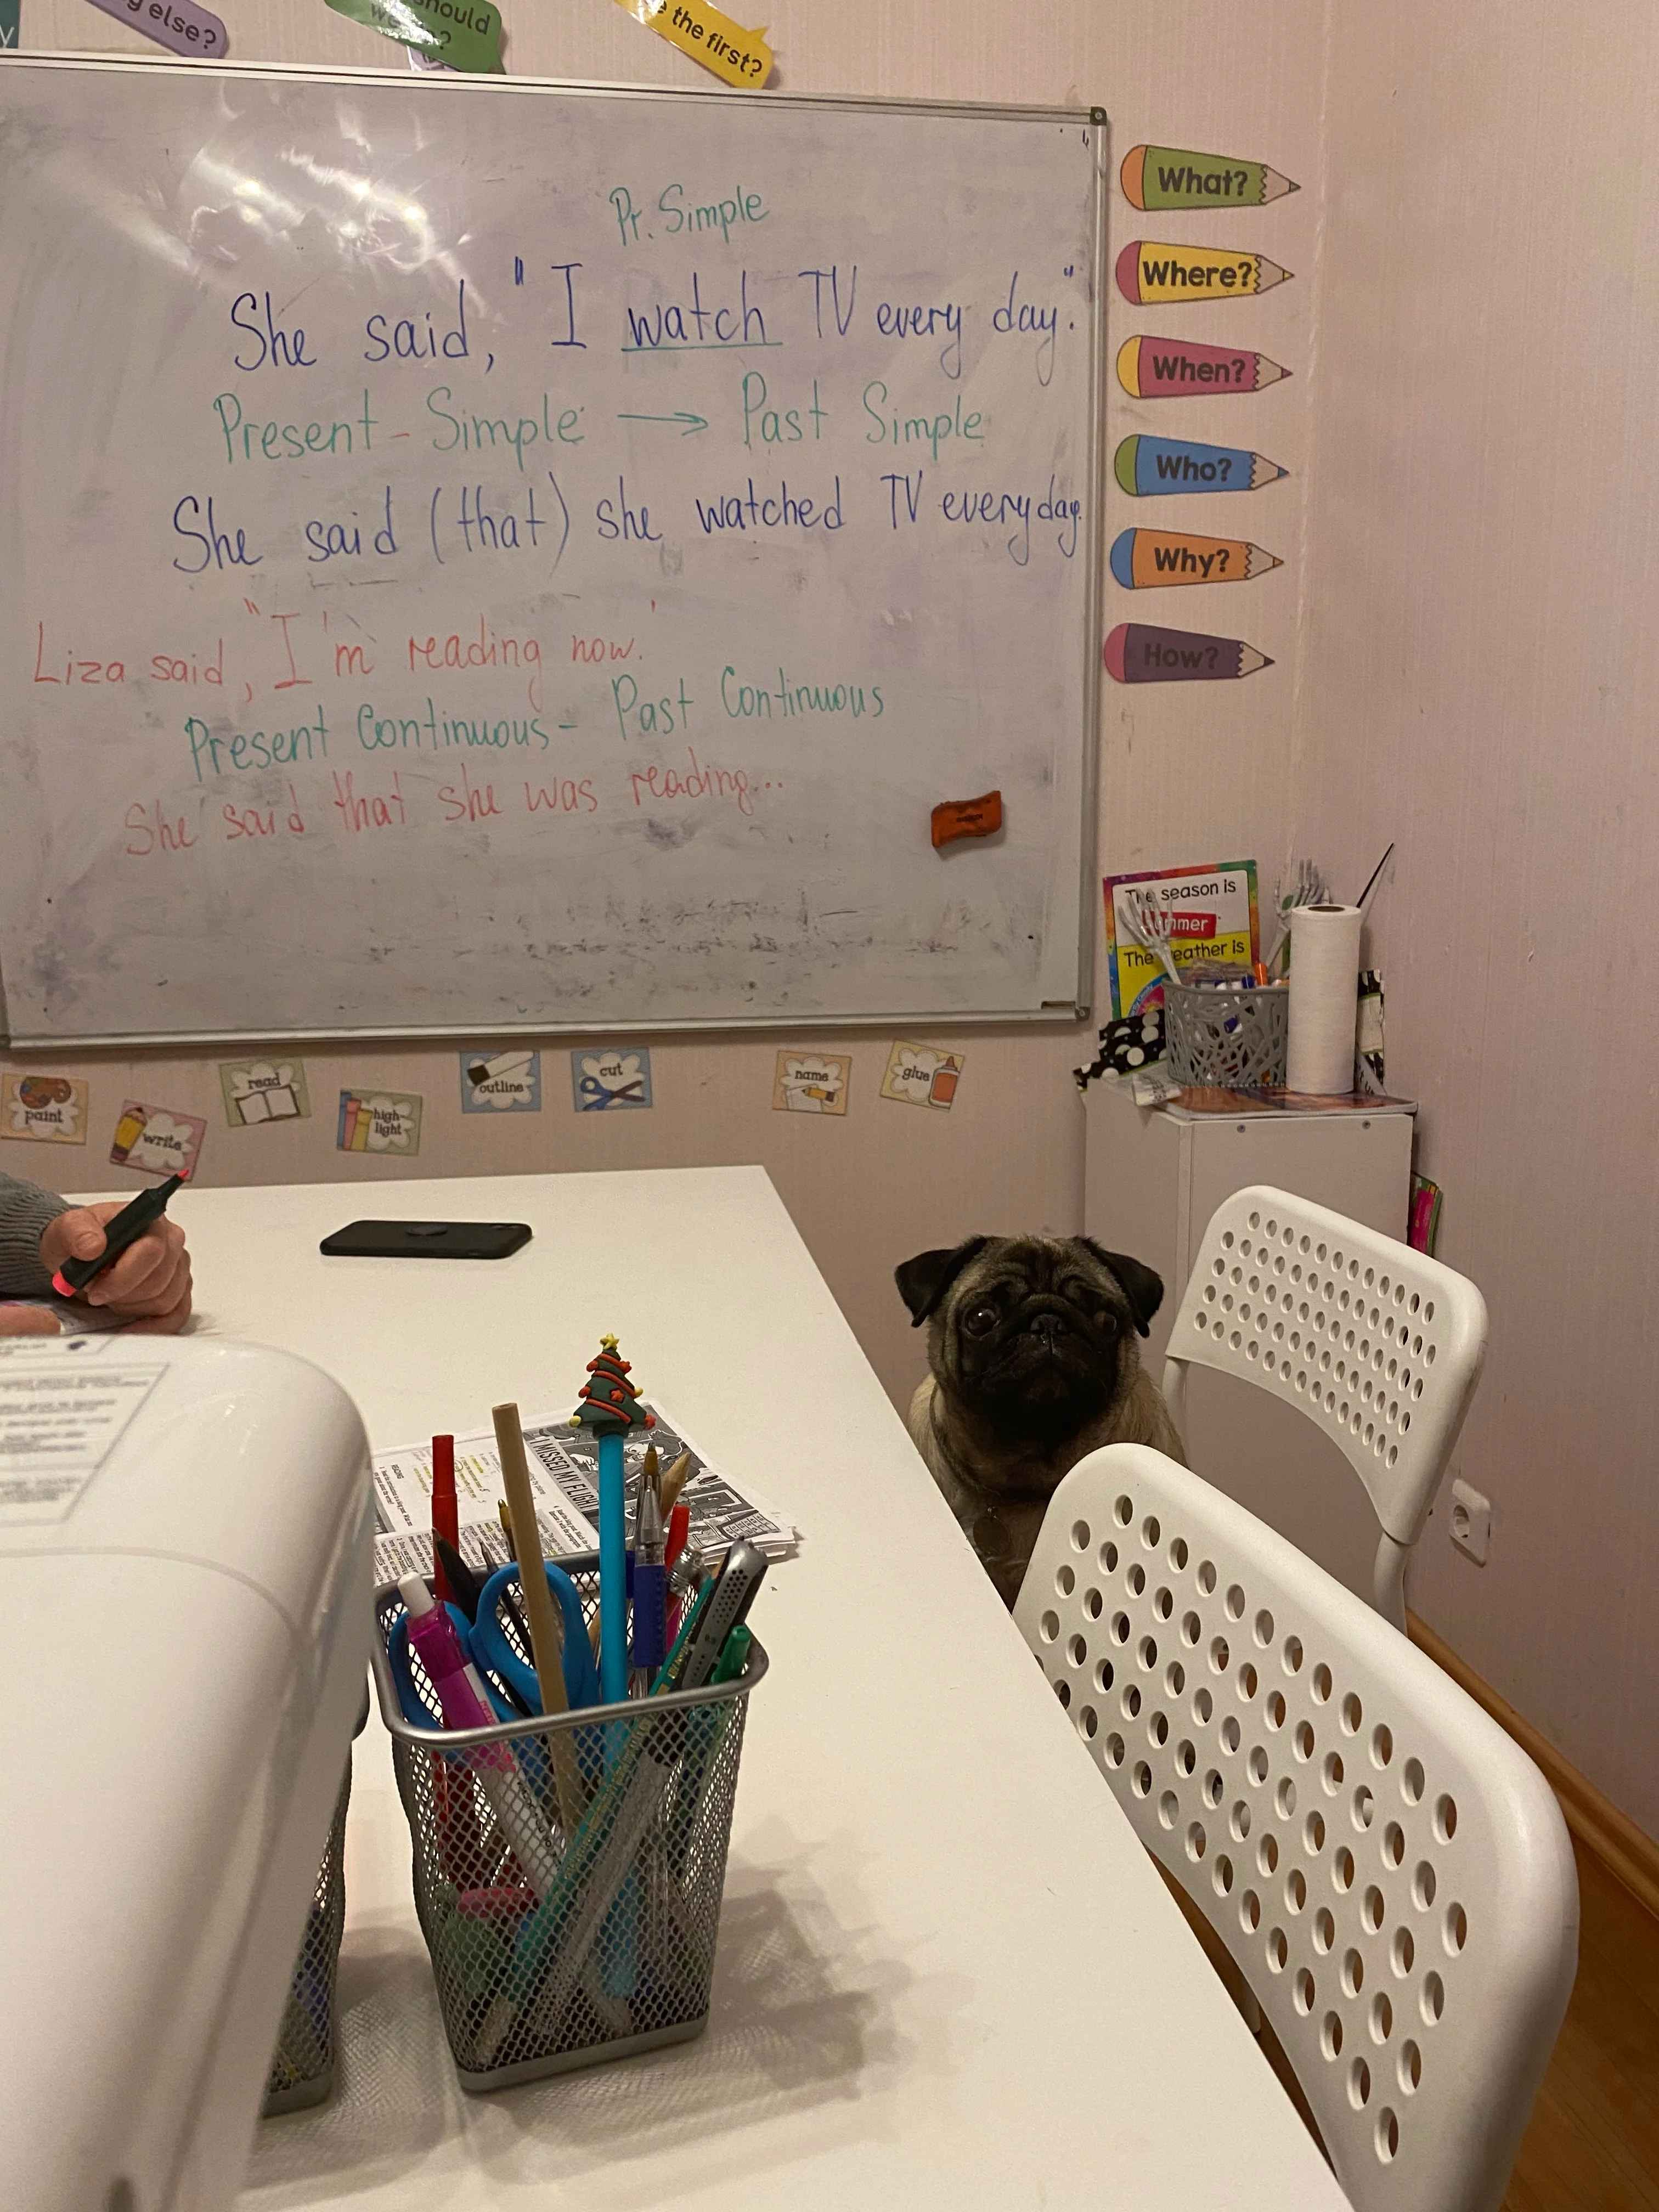 else?
should
we
the first?
Pr. Simple
She said, "I watch TV every day."
Present - Simple → Past Simple
She said (that) she watched TV everyday.
Liza said, "I'm reading now.'
Present Continuous - Past Continuous
She said that she was reading...
What?
Where?
When?
Who?
Why?
How?
The season is
The weather is
paint
write
read
high
light
outline
cut
name
glue
I MISSED MY FLIGHT